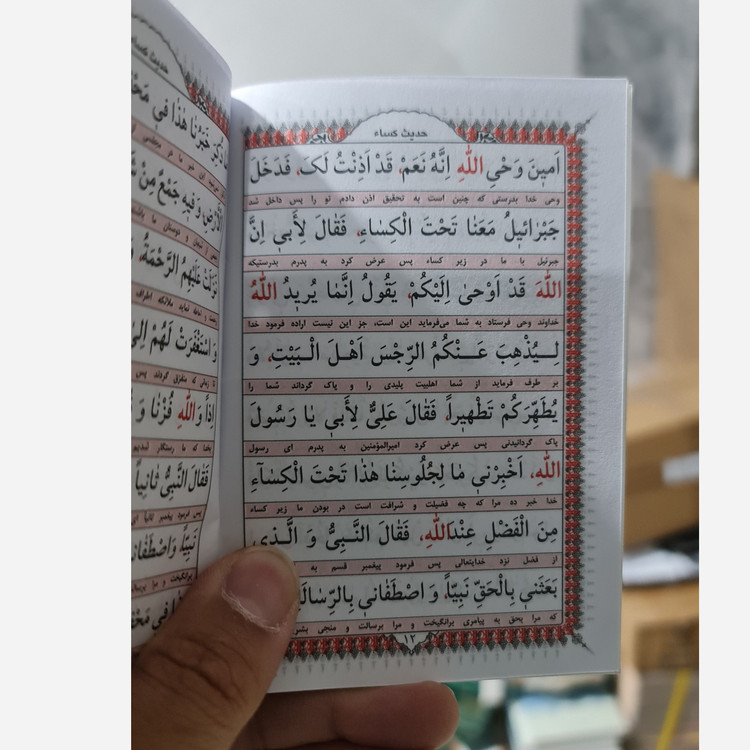 حدیث کساء
اَمینَ وَحْیِ اللّٰهِ اِنَّهُ نَعَمْ، قَدْ اَذِنْتُ لَکَ، فَدَخَلَ
وحی خدا بدرستی که چنین است به تحقیق اذن دادم تو را پس داخل شد
جَبْرٰائیلُ مَعَنٰا تَحْتَ الْکِسٰاءِ، فَقٰالَ لِأَبی اِنَّ
جبرئیل با ما در زیر کساء پس عرض کرد به پدرم بدرستیکه
اللّٰهَ قَدْ اَوْحیٰ اِلَیْکُمْ، یَقُولُ اِنَّمٰا یُریدُ اللّٰهُ
خداوند وحی فرستاد به شما می‌فرماید این است، جز این نیست اراده فرمود خدا
لِیُذْهِبَ عَنْکُمُ الرِّجْسَ اَهْلَ الْبَیْتِ، وَ
بر طرف فرماید از شما اهلبیت پلیدی را و پاک گرداند شما را
یُطَهِّرَکُمْ تَطْهیراً، فَقٰالَ عَلِیٌّ لِأَبی یٰا رَسُولَ
پاک گردانیدنی پس عرض کرد امیرالمؤمنین به پدرم ای رسول
اللّٰهِ، اَخْبِرْنی مٰا لِجُلُوسِنٰا هٰذٰا تَحْتَ الْکِسٰاءِ
خدا خبر ده مرا که چه فضیلت و شرافت است در بودن ما زیر کساء
مِنَ الْفَضْلِ عِنْدَاللّٰهِ، فَقٰالَ النَّبِیُّ وَ الَّذی
از فضل نزد خدایتعالی پس فرمود پیغمبر قسم به
بَعَثَنی بِالْحَقِّ نَبِیّاً، وَ اصْطَفٰانی بِالرِّسٰالَ
که مرا بحق به پیامبری برانگیخت و مرا برسالت و منجی بشر
۱۲
حدیث کساء
خَبَرُنٰا هٰذٰا فی
وَ فیهِ جَمْعٌ مِنْ
عَلَیْهِمُ الرَّحْمَةُ، وَ
وَ اسْتَغْفَرَتْ لَهُمْ اِلیٰ
اِذاً وَاللّٰهِ فُزْنٰا وَ
بخدا که ما رستگار شدیم
فَقٰالَ النَّبِیُّ ثٰانِیاً
پس فرمود پیغمبر ثانیا
نَبِیّاً، وَاصْطَفٰانی